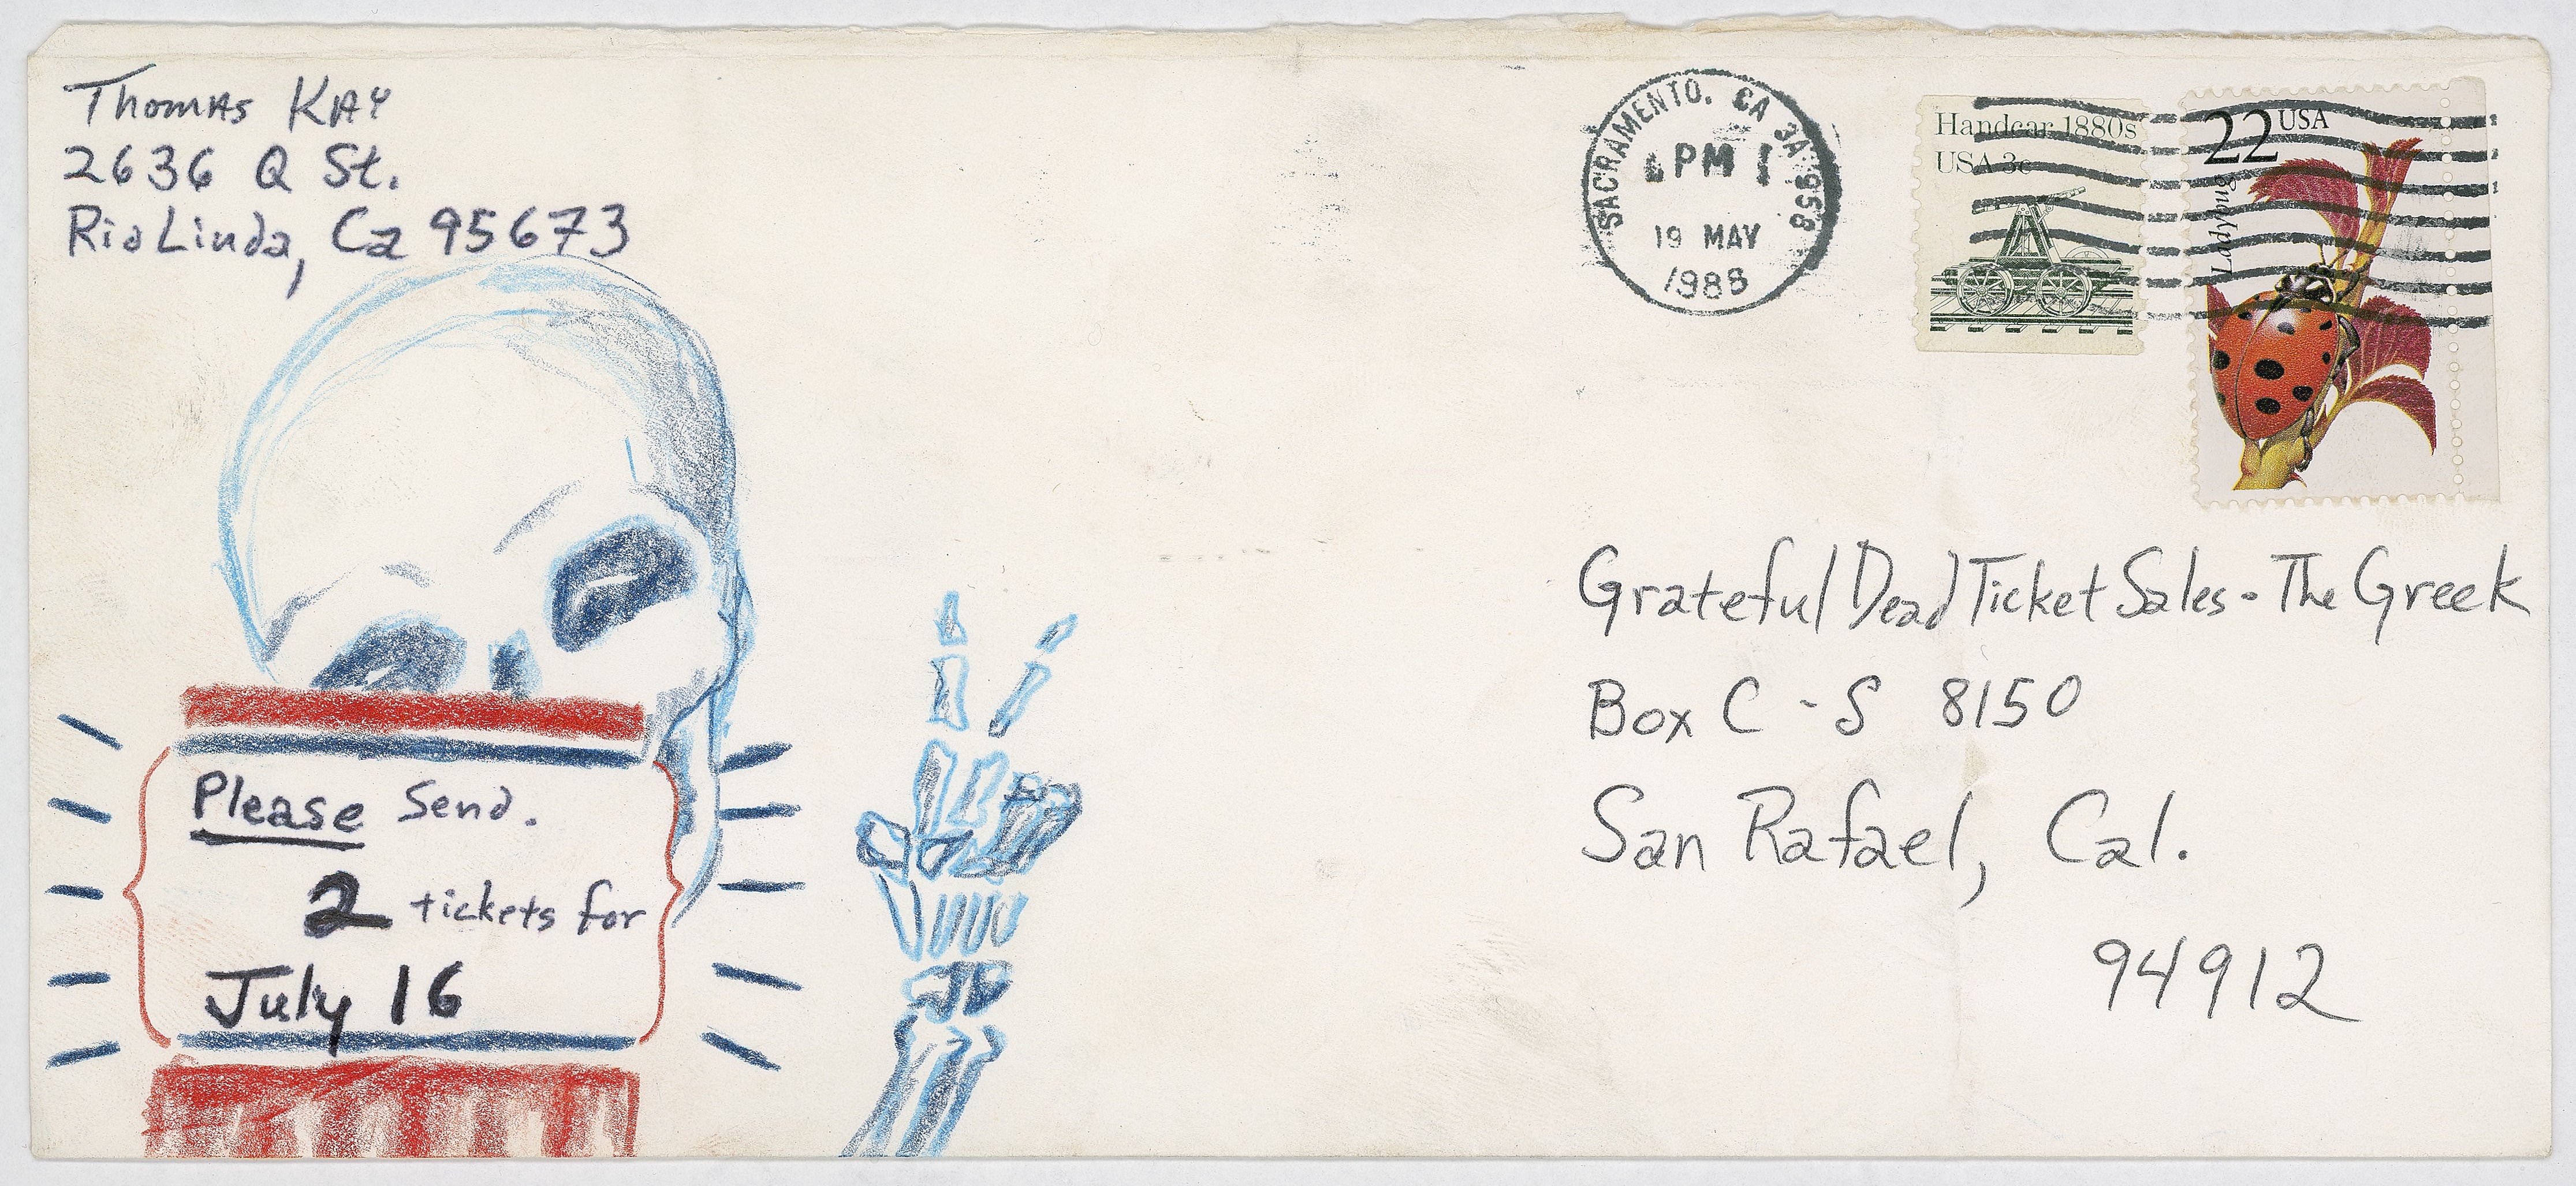 Thomas Kay
2636 Q St.
Rio Linda, Ca 95673
SACRAMENTO, CA 3A 958
PM
19 MAY
1988
Handcar 1880s
USA 3c
22 USA
Ladybug
Grateful Dead Ticket Sales - The Greek
Box C - S 8150
San Rafael, Cal.
94912
Please Send.
2 tickets for
July 16